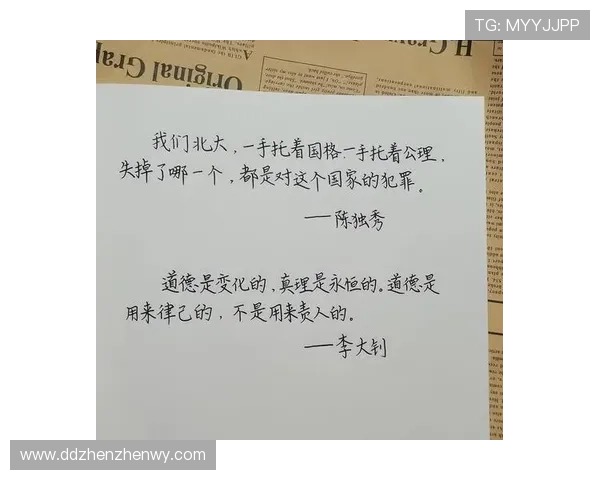 TG: MYYJJPP
H Gra
Original Grap
我们北大，一手托着国格一手托着公理，
失掉了哪一个，都是对这个国家的犯罪。
——陈独秀
道德是变化的，真理是永恒的。道德是
用来律己的，不是用来责人的。
——李大钊
www.ddzhenzhenwy.com